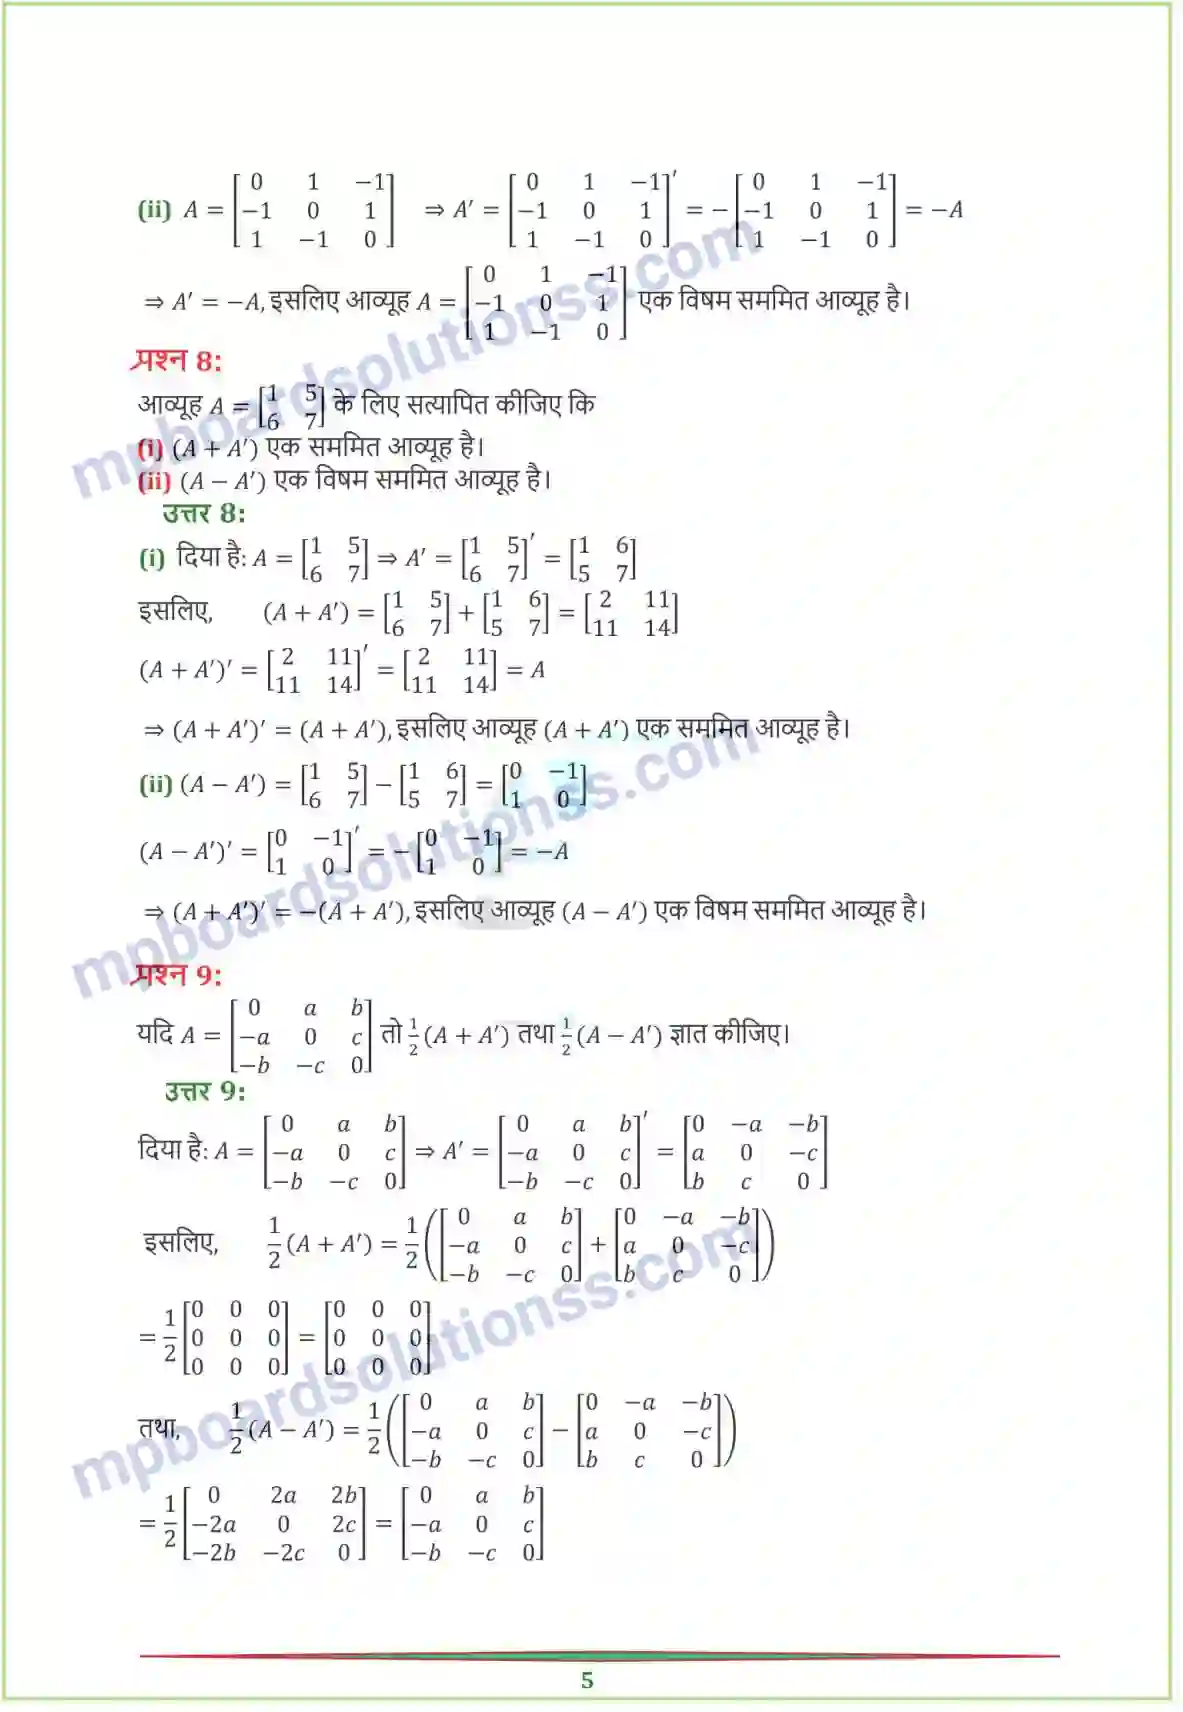 (ii) A = [0 1 −1; −1 0 1; 1 −1 0] ⇒ A′ = [0 1 −1; −1 0 1; 1 −1 0]′ = −[0 1 −1; −1 0 1; 1 −1 0] = −A
⇒ A′ = −A, इसलिए आव्यूह A = [0 1 −1; −1 0 1; 1 −1 0] एक विषम सममित आव्यूह है।
प्रश्न 8:
आव्यूह A = [1 5; 6 7] के लिए सत्यापित कीजिए कि
(i) (A + A′) एक सममित आव्यूह है।
(ii) (A − A′) एक विषम सममित आव्यूह है।
उत्तर 8:
(i) दिया है: A = [1 5; 6 7] ⇒ A′ = [1 5; 6 7]′ = [1 6; 5 7]
इसलिए, (A + A′) = [1 5; 6 7] + [1 6; 5 7] = [2 11; 11 14]
(A + A′)′ = [2 11; 11 14]′ = [2 11; 11 14] = A
⇒ (A + A′)′ = (A + A′), इसलिए आव्यूह (A + A′) एक सममित आव्यूह है।
(ii) (A − A′) = [1 5; 6 7] − [1 6; 5 7] = [0 −1; 1 0]
(A − A′)′ = [0 −1; 1 0]′ = −[0 −1; 1 0] = −A
⇒ (A + A′)′ = −(A + A′), इसलिए आव्यूह (A − A′) एक विषम सममित आव्यूह है।
प्रश्न 9:
यदि A = [0 a b; −a 0 c; −b −c 0] तो 1/2 (A + A′) तथा 1/2 (A − A′) ज्ञात कीजिए।
उत्तर 9:
दिया है: A = [0 a b; −a 0 c; −b −c 0] ⇒ A′ = [0 a b; −a 0 c; −b −c 0]′ = [0 −a −b; a 0 −c; b c 0]
इसलिए, 1/2 (A + A′) = 1/2 ([0 a b; −a 0 c; −b −c 0] + [0 −a −b; a 0 −c; b c 0])
= 1/2 [0 0 0; 0 0 0; 0 0 0] = [0 0 0; 0 0 0; 0 0 0]
तथा, 1/2 (A − A′) = 1/2 ([0 a b; −a 0 c; −b −c 0] − [0 −a −b; a 0 −c; b c 0])
= 1/2 [0 2a 2b; −2a 0 2c; −2b −2c 0] = [0 a b; −a 0 c; −b −c 0]
5
mpboardsolutionss.com
mpboardsolutionss.com
mpboardsolutionss.com